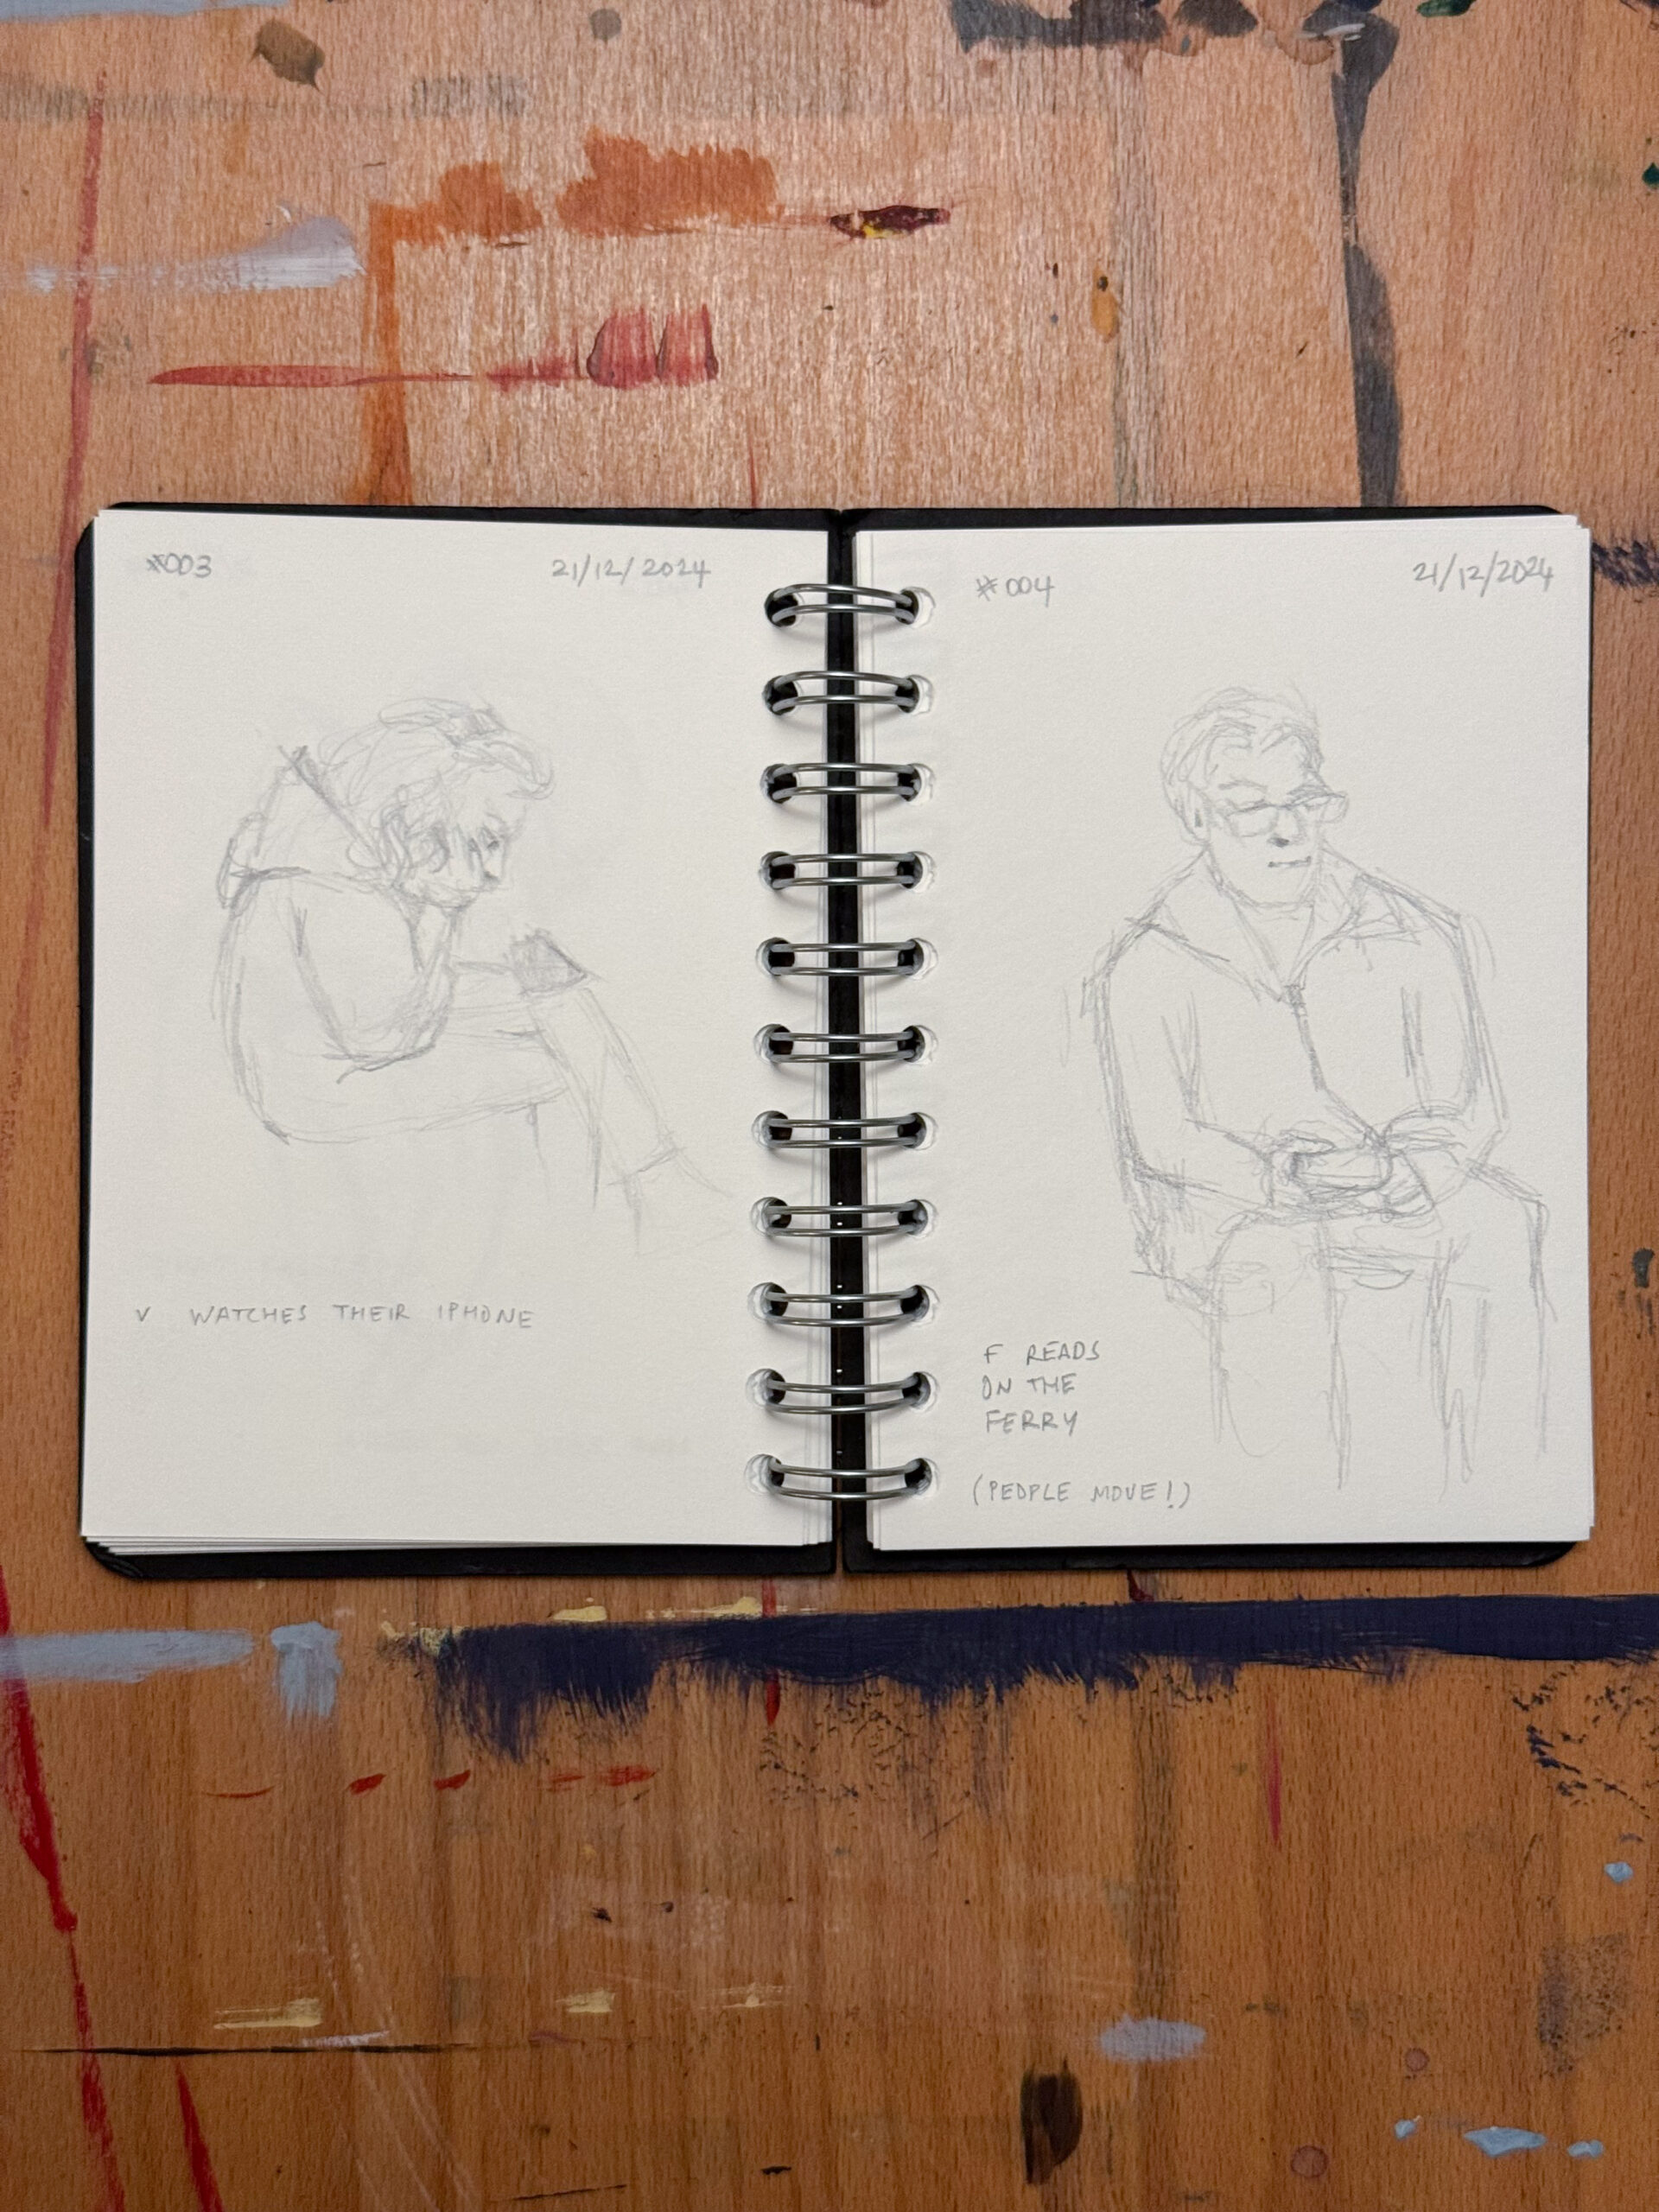 #003
21/12/2024
V WATCHES THEIR IPHONE
#004
21/12/2024
F READS
ON THE
FERRY
(PEOPLE MOVE!)